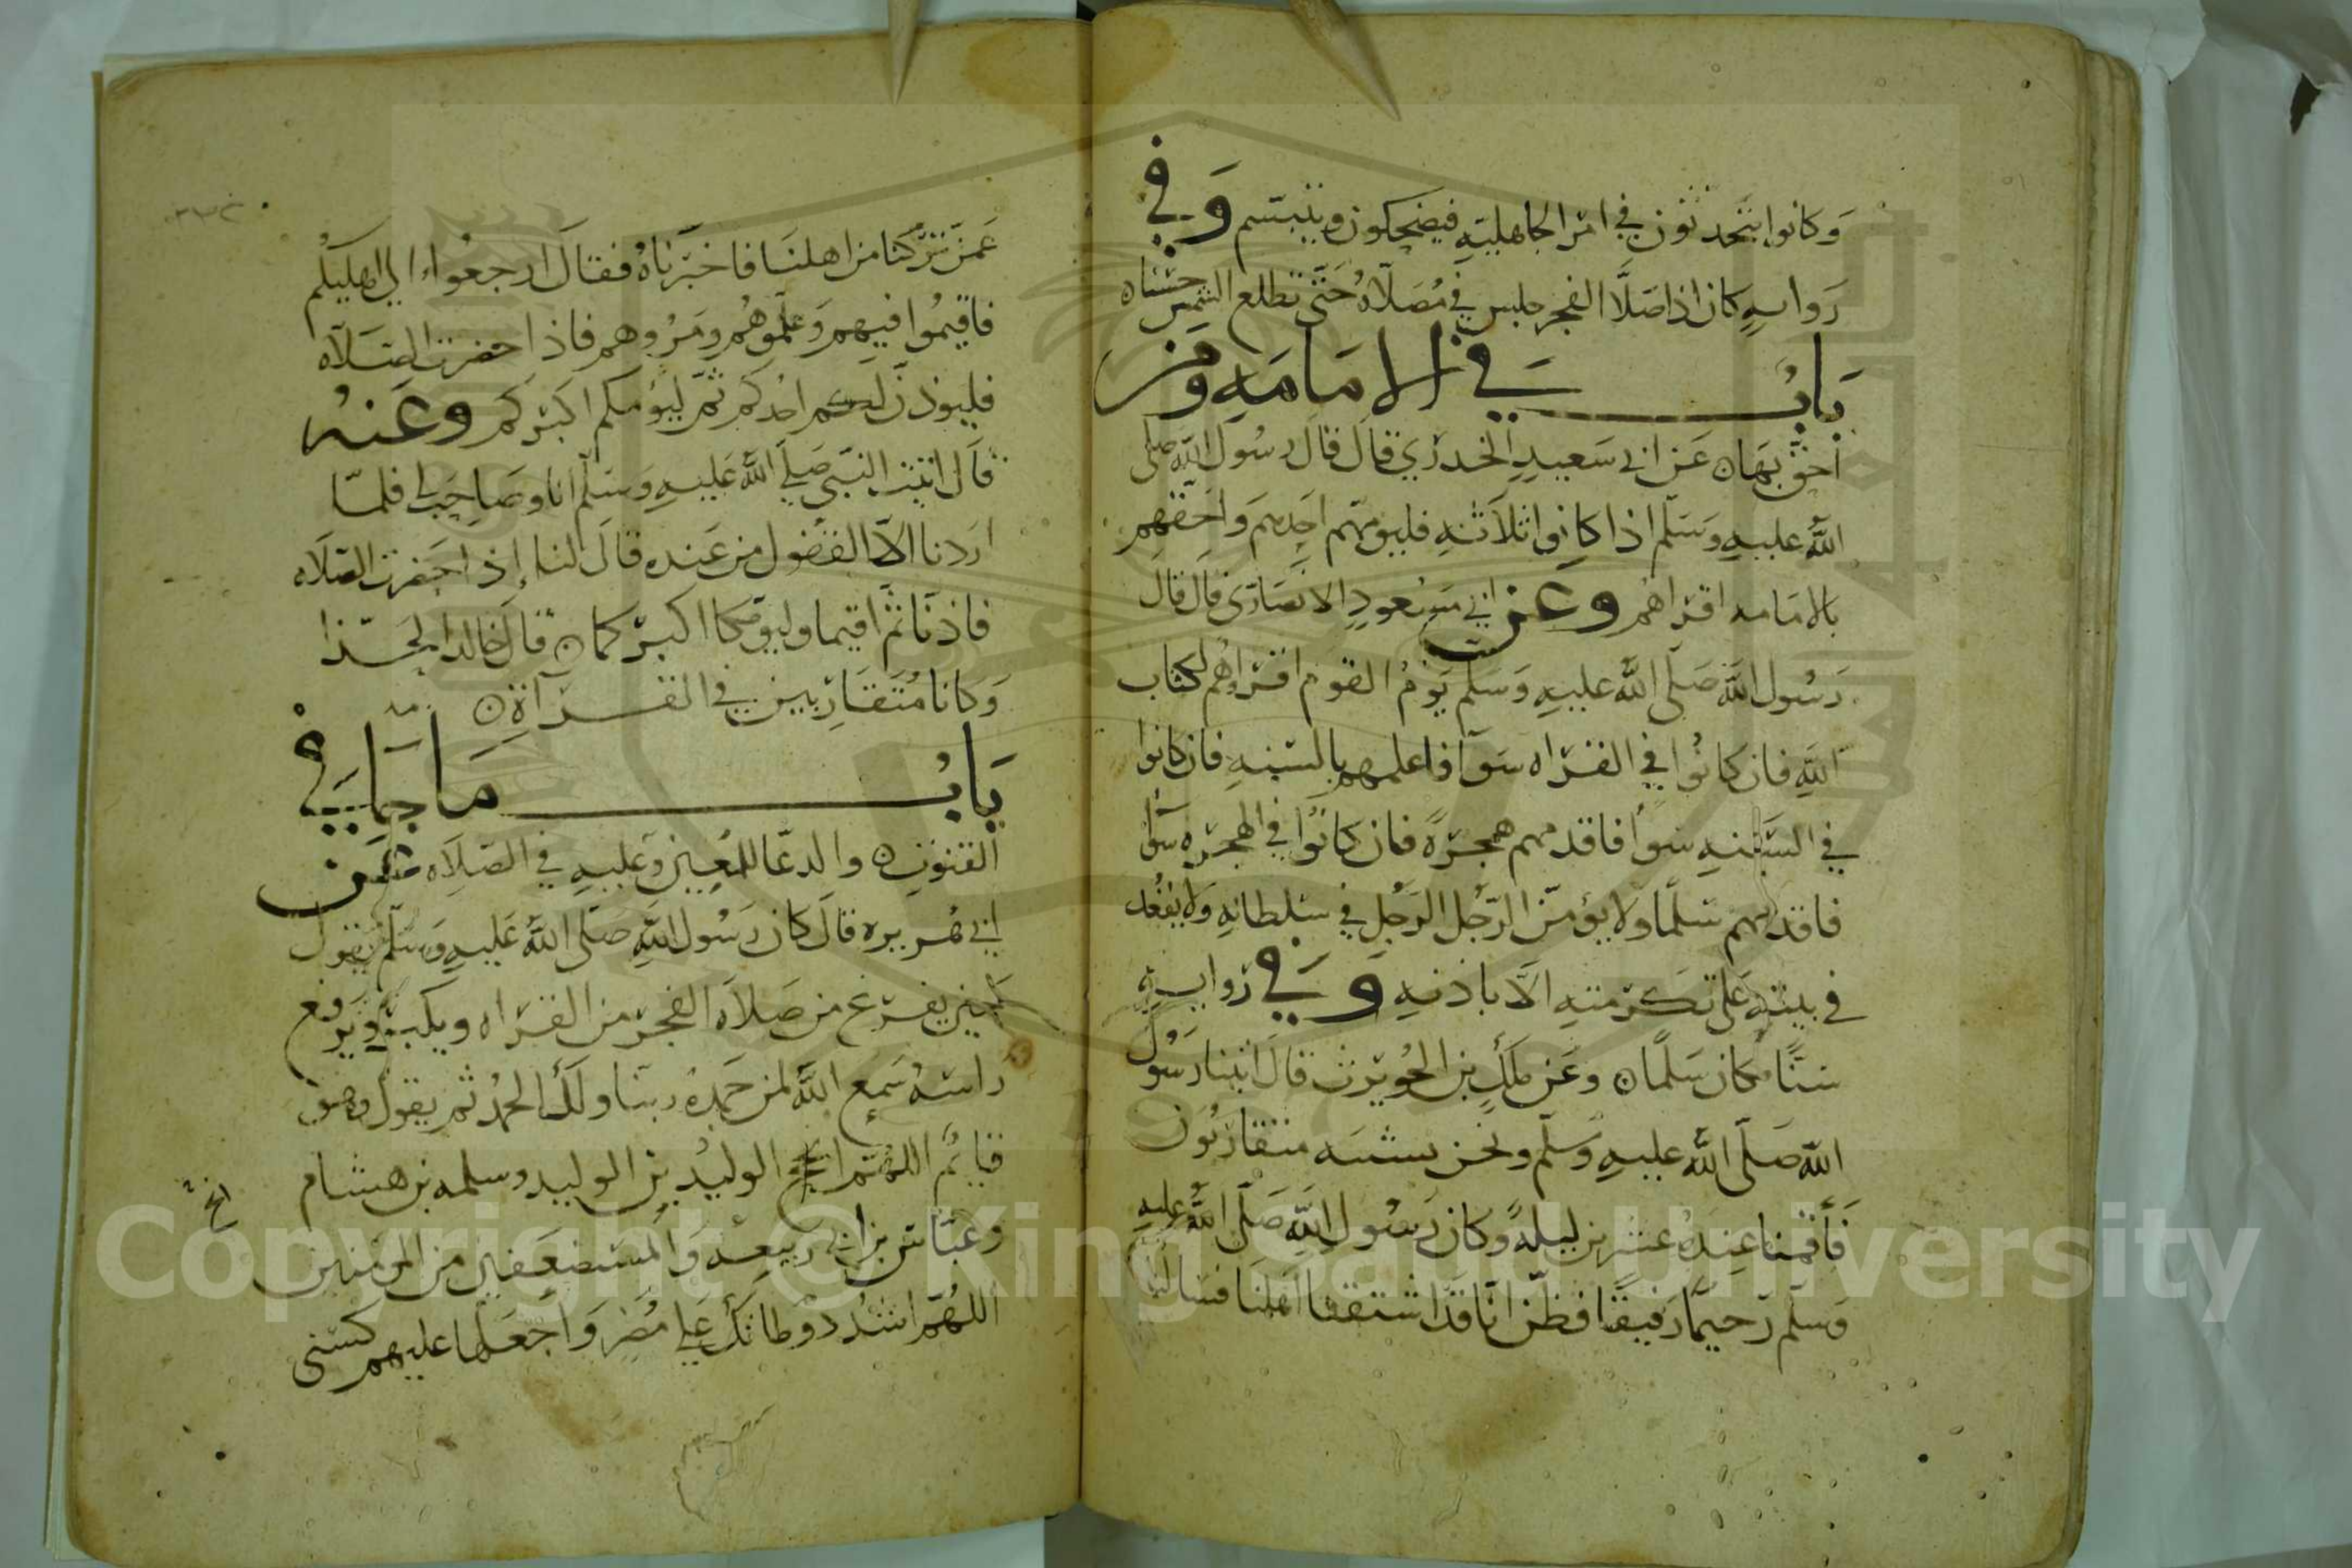 وكانوا يتحدثون في امر الجاهلية فيضحكون ويتبسم وفي
رواية كان اذا صلا الفجر جلس في مصلاه حتى تطلع الشمس حسناه
باب في الامامه ومن
احق بها ه عن ابي سعيد الخدري قال قال رسول الله صلى
الله عليه وسلم اذا كانوا ثلاثه فليومهم احدهم واحقهم
بالامامه اقراهم وعن ابي مسعود الانصاري قال قال
رسول الله صلى الله عليه وسلم يوم القوم اقراهم لكتاب
الله فان كانوا في القراه سوآ فاعلمهم بالسنه فان كانوا
في السنه سوآ فاقدمهم هجرة فان كانوا في الهجره سوآ
فاقدمهم سلما ولا يؤمن الرجل الرجل في سلطانه ولا يقعد
في بيته على تكرمته الا باذنه وفي رواية
سنا مكان سلما ه وعن ملك بن الحويرث قال اتينا رسول
الله صلى الله عليه وسلم ونحن شببه متقاربون
فأقمنا عنده عشرين ليلة وكان رسول الله صلى الله عليه
وسلم رحيما رفيقا فظن انا قد اشتقنا اهلنا فسالنا
عمن تركنا من اهلنا فاخبرناه فقال ارجعوا الي اهليكم
فاقيموا فيهم وعلموهم ومروهم فاذا حضرت الصلاه
فليوذن لكم احدكم ثم ليؤمكم اكبركم وعنه
قال اتيت النبي صلى الله عليه وسلم انا وصاحب لي فلما
اردنا الاقفول من عنده قال لنا إذا حضرت الصلاه
فاذنا ثم اقيما وليؤمكما اكبركما ه قال خالد الحذا
وكانا متقاربين في القرآة ه
باب ما جا في
القنوت ه والدعا للمعين وعليه في الصلاه عن
ابي هريره قال كان رسول الله صلى الله عليه وسلم يقول
حين يفرغ من صلاه الفجر من القراه ويكبر ويرفع
راسه سمع الله لمن حمده ربنا ولك الحمد ثم يقول وهو
قايم اللهم انج الوليد بن الوليد وسلمه بن هشام
انج
وعياش بن ابي ربيعه والمستضعفين من المومنين
اللهم اشدد وطاتك على مضر واجعلها عليهم كسنى
Copyright © King Saud University